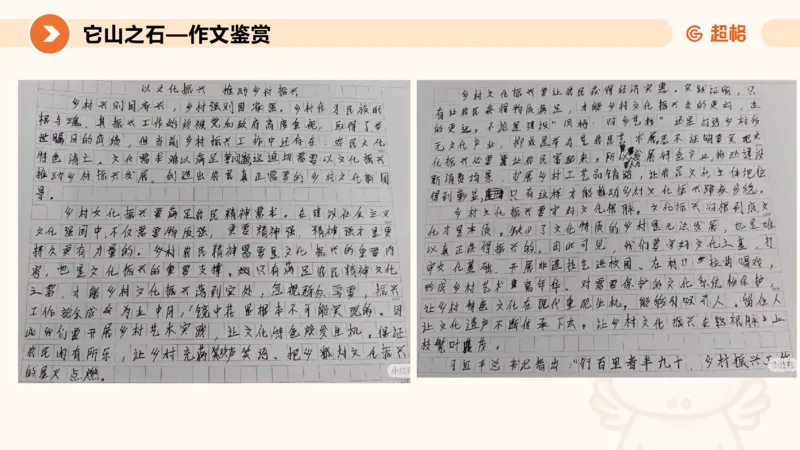 它山之石—作文鉴赏
超格
以文化振兴 推动乡村振兴
乡村兴则国家兴，乡村强则国家强。乡村作为民族的
根与魂，其振兴工作始终被党和政府高度重视，取得了举
世瞩目的成绩，但当前乡村振兴工作中还存在：农民文化
特色消亡、文化需求难以满足等问题这迫切需要以文化振兴
推动乡村振兴发展，创造出农民真正需要的乡村文化新图
景。
乡村文化振兴要满足农民精神需求。在建设社会主义
文化强国中，不仅需要物质强，更要精神强，精神强才是更
持久更有力量的。乡村农民精神需要是文化振兴的重要内
容，也是文化振兴的重要支撑。只有满足农民精神文化
之需，才能乡村文化振兴落到实处，忽视群众需要，振兴
工作就会成为水中月，镜中花里根本不可能实现的。因
此我们要开展乡村艺术实践，让文化特色焕发生机。保证
农民闲有所乐，让乡村充满欢声笑语、把乡村文化振兴
的星火点燃。
乡村文化振兴要让农民获得经济实惠。实践证明，只
有让农民获得物质满足，才能乡村文化振兴走的更好，走
的更远。不论是建设
元文化产业，抑或是
化振兴必要让农民富起来。所以发展特色产业，推动建设
新消费场景，扩展乡村工艺品销路，让农民文化主体地位
得到彰显只有这样才能推动乡村文化振兴
乡村文化振兴要守好文化根脉。文化振兴归根到底文
化才是本质。缺少了文化特质的乡村是无法发展，也是难
以真正获得振兴的。因此可见，我们要守好文化之基，打
牢文化基础，开展非遗技艺进校园、在村口拉响唱戏，
形成乡村艺术嘉年华。对需要保护的文化系统化保护
让乡村特色文化在现代重现生机，能够引吸引人、留住人
让文化遗产不断传承下去。让乡村文化振兴在
枝繁叶茂。
习近平总书记指出：“行百里者半九十，乡村振兴工作
小红书